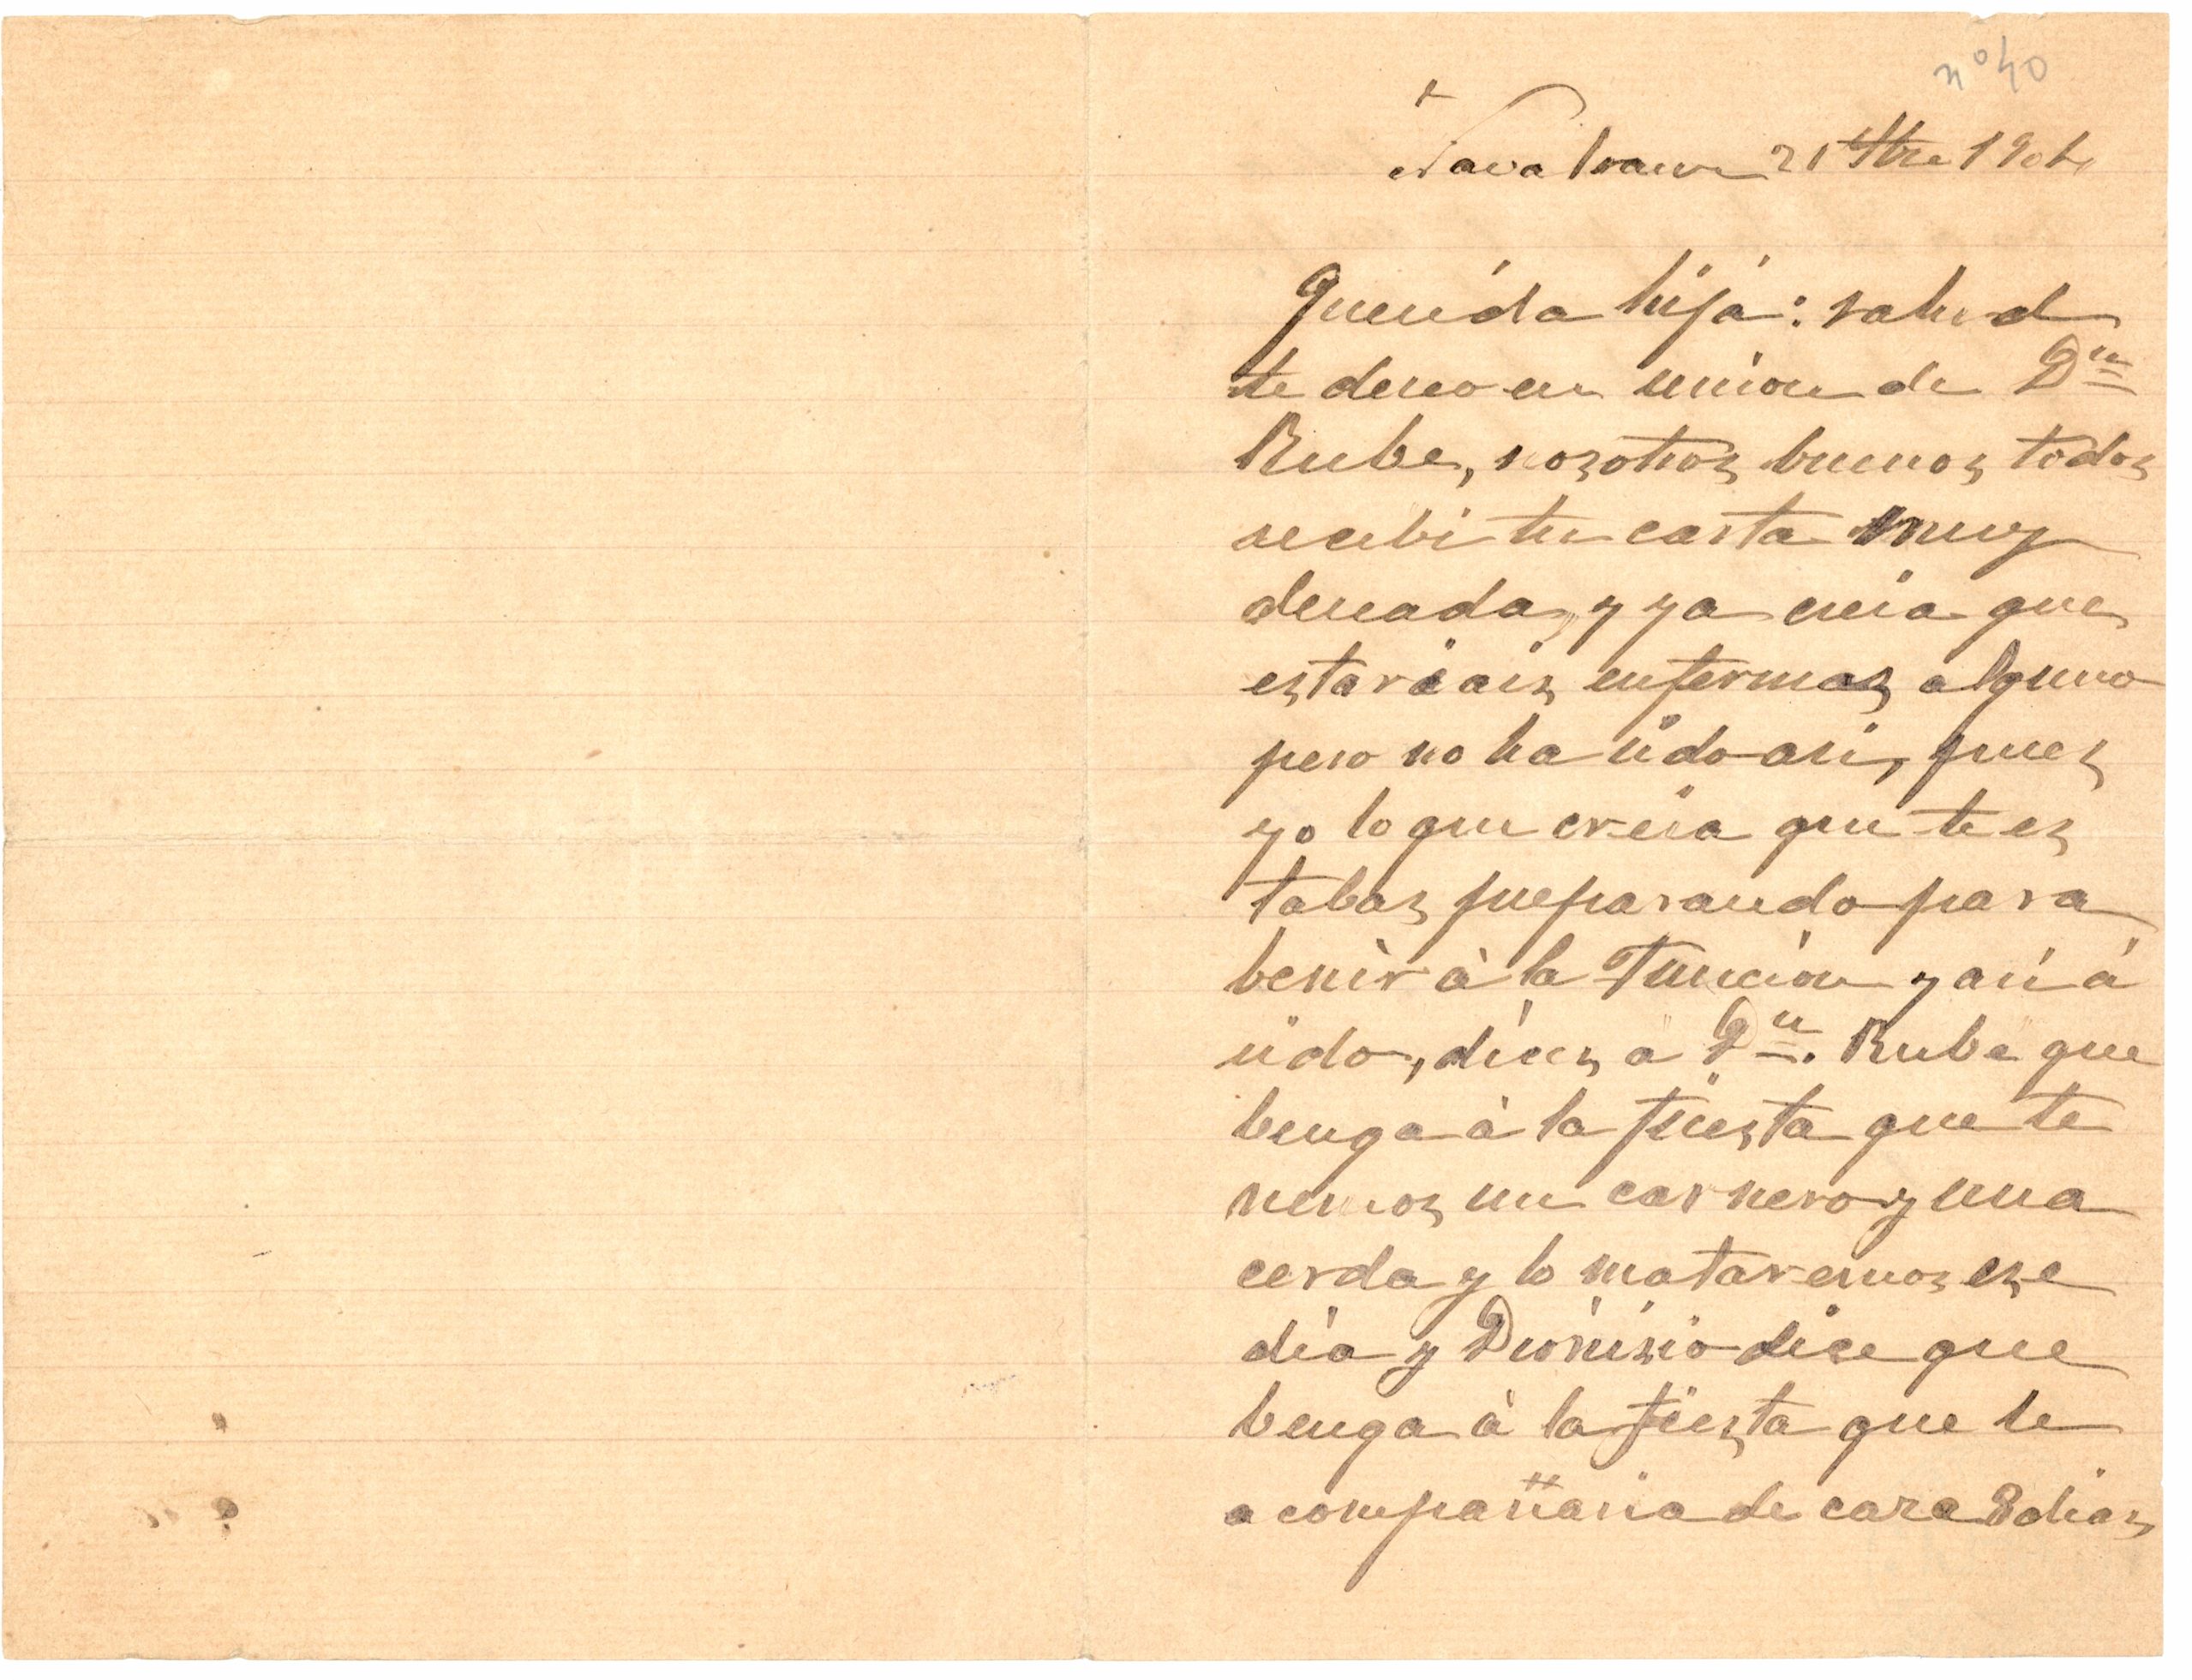 nº 40
+
21 7bre 190
Querida hija: salud
te deseo en union de Dn
Rube, nosotros buenos todos
recibi tu carta muy
deseada, y ya creia que
estariais enfermos alguno
pero no ha sido asi, pues
yo lo que creia que te es
tabas preparando para
benir à la Funcion y asi á
sido, dices a Dn. Rube que
benga à la fiesta que te
nemos un carnero y una
cerda y lo mataremos ese
dia y Dionisio dice que
benga à la fiesta que le
acompañaria de caza 8 dias